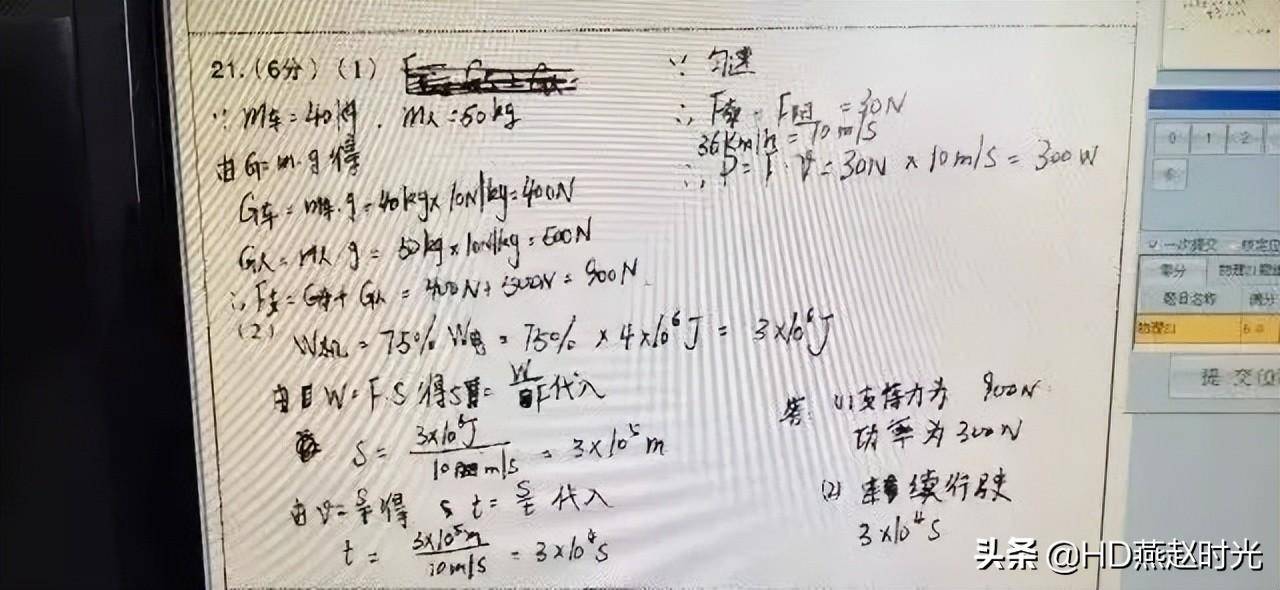 21.(6分)(1)
∵ m车=40kg , m人=50kg
由G=m·g得
G车=m车·g=40kg×10N/kg=400N
G人=m人·g=50kg×10N/kg=500N
∴F支=G车+G人=400N+500N=900N
∵ 匀速
∴ F牵=F阻=30N
36km/h=10m/s
∴ P=F·V=30N×10m/s=300W
(2)
W机=75%W电=75%×4×10⁶J=3×10⁶J
由W=F·S得S=W/F代入
S=3×10⁶J/10m/s=3×10⁵m
由v=s/t得 t=s/t代入
t=3×10⁵m/10m/s=3×10⁴s
答 (1)支持力为 900N
功率为300N
(2) 续行驶
3×10⁴s
0 1 2
6
一次提交
零分
题目名称 满分
物理21 6.0
提 交(Q
头条 @HD燕赵时光